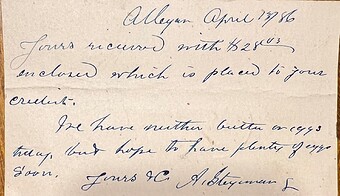 Allegan April 13/86
Yours recieved with $28
enclosed which is placed to your
credit.
We have neither butter or eggs
today, but hope to have plenty of eggs
soon. Yours &C A. Stegeman